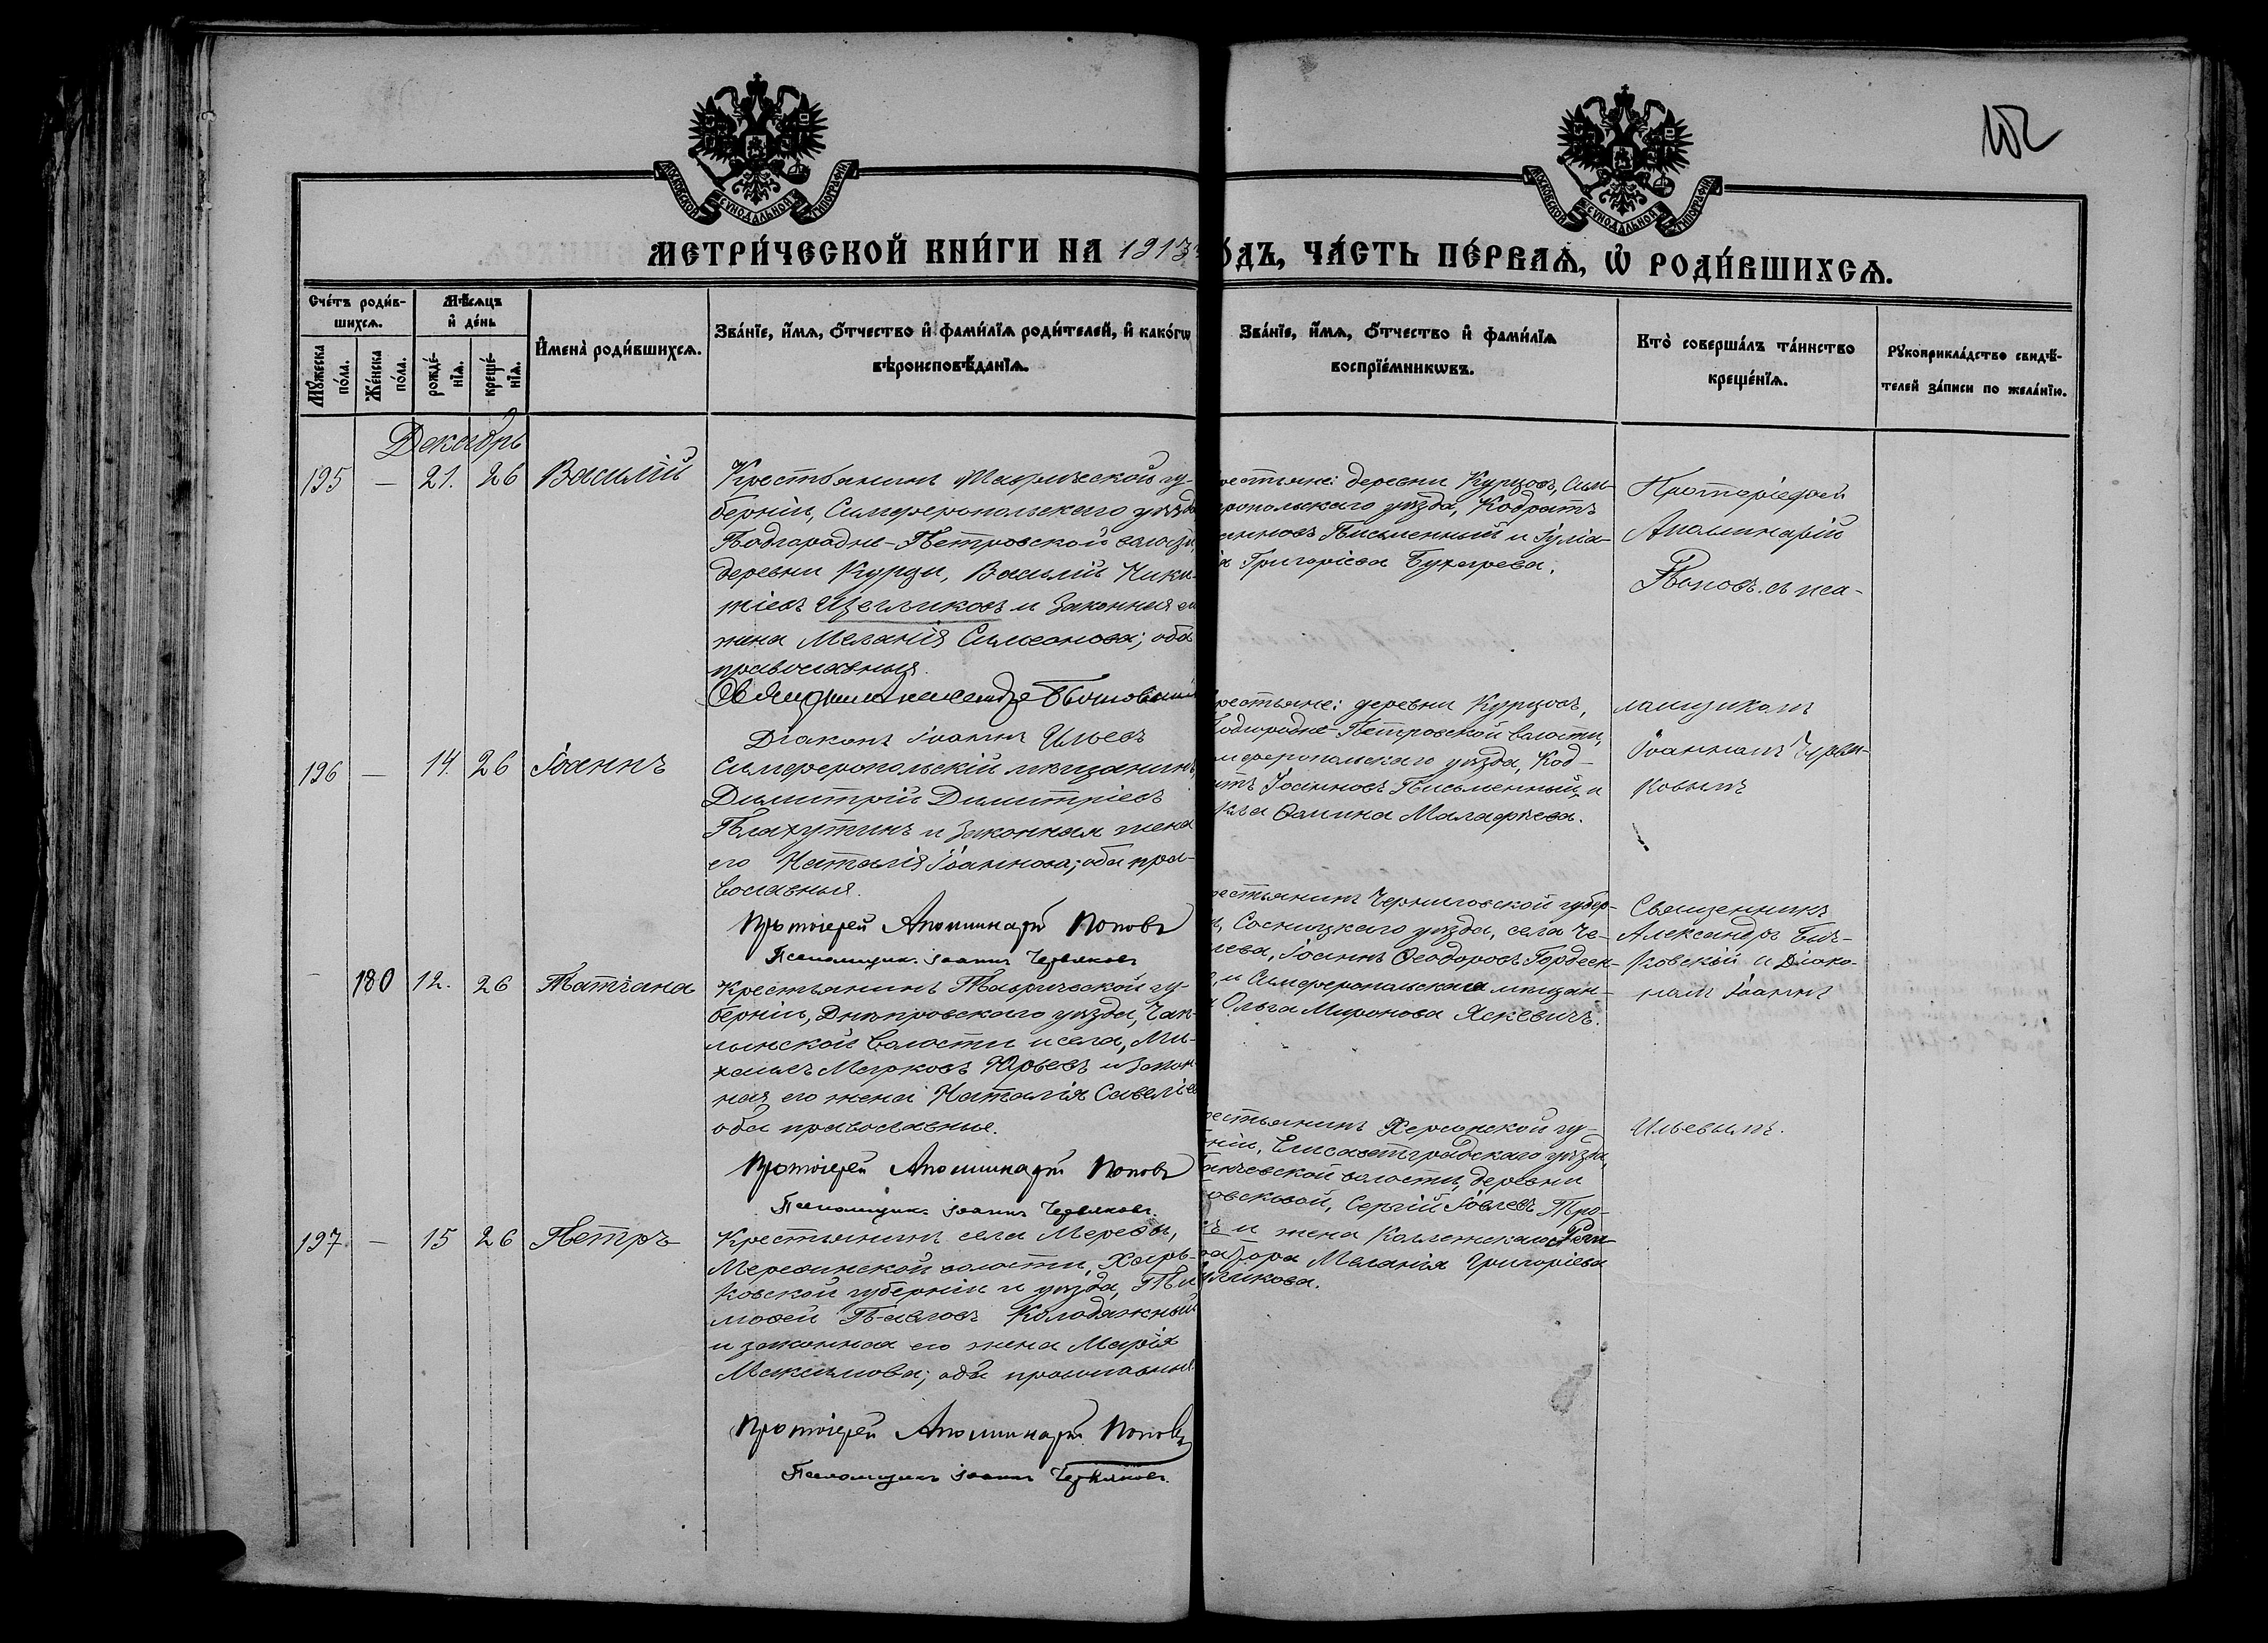 102
МОСКОВСКОЙ СѴНОДАЛЬНОЙ ТИПОГРАФІИ
МОСКОВСКОЙ СѴНОДАЛЬНОЙ ТИПОГРАФІИ
МЕТРИ́ЧЕСКОЙ КНИ́ГИ НА 1913
О́ДЪ, ЧА́СТЬ ПЕ́РВАѦ, Ѡ РОДИ́ВШИХСѦ.
Сче́тъ роди́в-
шихсѧ.
Мꙋ́жеска по́ла.
Же́нска по́ла.
Мѣ́сѧцъ
и҆ де́нь
рожде́-
нїѧ.
креще́-
нїѧ.
И҆мена̀ роди́вшихсѧ.
Зва́нїе, и҆́мѧ, ѻ҆́тчество и҆ фами́лїѧ роди́телей, и҆ како́гѡ
вѣроисповѣ́данїѧ.
Зва́нїе, и҆́мѧ, ѻ҆́тчество и҆ фами́лїѧ
воспрїе́мникѡвъ.
Кто̀ соверша́лъ та́инство
креще́нїѧ.
Рꙋкоприкла́дство свидѣ́-
телей за́писи по жела́нїю.
Декабрь
195 — 21. 26 Василій
Крестьянинъ Таврической гу-
берніи, Симферопольскаго уѣзда
Подгородне-Петровской волости,
деревни Курци, Василій Ники-
тіевъ Щегликовъ и законная его
жена Меланія Симеонова; оба
православныя.
Священникъ Александръ
Діаконъ Іоаннъ Ильевъ
рестьяне: деревни Курцовъ, Сим-
еропольскаго уѣзда, Кодратъ
анновъ Письменный и Іуліа-
я Григоріева Бухарева.
Протоіерей
Аполинарій
Поповъ съ пса-
ломщикомъ
Іоанномъ Червя-
ковымъ
196 — 14. 26 Іоаннъ
Симферопольскій мѣщанинъ,
Димитрій Димитріевъ
Плахутинъ и законная жена
его Наталія Іоаннова; оба пра-
вославныя.
Протоіерей Аполлинарій Поповъ
Псаломщикъ Іоаннъ Червяковъ
рестьяне: деревни Курцовъ,
Подгородне-Петровской волости,
мферопольскаго уѣзда, Код-
атъ Іоанновъ Письменный и
Ѳомина Малафѣева.
— 180 12. 26 Татіана
Крестьянинъ Таврической гу-
берніи, Днѣпровскаго уѣзда, Чап-
лынской волости и села, Ми-
хаилъ Марковъ Юрьевъ и закон-
ная его жена Наталія Савеліев
оба православные.
Протоіерей Аполлинарій Поповъ
Псаломщикъ Іоаннъ Червяковъ.
рестьянинъ Черниговской губер-
Сосницкаго уѣзда, села Че-
Іоаннъ Ѳеодоровъ Гордеен-
и Симферопольская мѣщан-
Ольга Миронова Яскевичъ.
Священникъ
Александръ
ковскій и Діако-
номъ Іоанномъ
Ильевымъ.
197 — 15 26 Петръ
Крестьянинъ села Мерефы,
Мерефинской волости, Харь-
ковской губерніи и уѣзда, Ти-
моѳей Павловъ Колодяжный
и законная его жена Марія
Максимова; оба православныя.
Протоіерей Аполлинарій Поповъ
Псаломщикъ Іоаннъ Червяковъ.
рестьянинъ Херсонской гу-
рніи, Елисаветградскаго уѣзда,
волости, деревни
Сергій Іовлевъ Про-
и жена Коллежскаго Реги-
ратора Меланія Григоріева